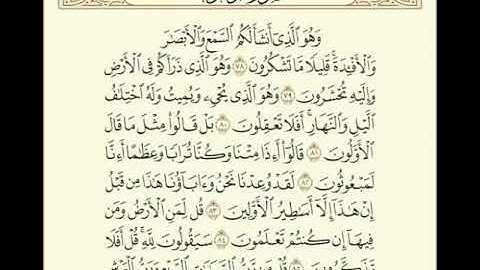 وَهُوَ ٱلَّذِىٓ أَنشَأَ لَكُمُ ٱلسَّمْعَ وَٱلْأَبْصَٰرَ
وَٱلْأَفْـِٔدَةَ ۚ قَلِيلًا مَّا تَشْكُرُونَ ٧٨ وَهُوَ ٱلَّذِى ذَرَأَكُمْ فِى ٱلْأَرْضِ
وَإِلَيْهِ تُحْشَرُونَ ٧٩ وَهُوَ ٱلَّذِى يُحْىِۦ وَيُمِيتُ وَلَهُ ٱخْتِلَٰفُ
ٱلَّيْلِ وَٱلنَّهَارِ ۚ أَفَلَا تَعْقِلُونَ ٨٠ بَلْ قَالُوا۟ مِثْلَ مَا قَالَ
ٱلْأَوَّلُونَ ٨١ قَالُوٓا۟ أَءِذَا مِتْنَا وَكُنَّا تُرَابًا وَعِظَٰمًا أَءِنَّا
لَمَبْعُوثُونَ ٨٢ لَقَدْ وُعِدْنَا نَحْنُ وَءَابَآؤُنَا هَٰذَا مِن قَبْلُ
إِنْ هَٰذَآ إِلَّآ أَسَٰطِيرُ ٱلْأَوَّلِينَ ٨٣ قُل لِّمَنِ ٱلْأَرْضُ وَمَن
فِيهَآ إِن كُنتُمْ تَعْلَمُونَ ٨٤ سَيَقُولُونَ لِلَّهِ ۚ قُلْ أَفَلَا
تَذَكَّرُونَ ٨٥ قُلْ مَن رَّبُّ ٱلسَّمَٰوَٰتِ ٱلسَّبْعِ وَرَبُّ ٱلْعَرْشِ